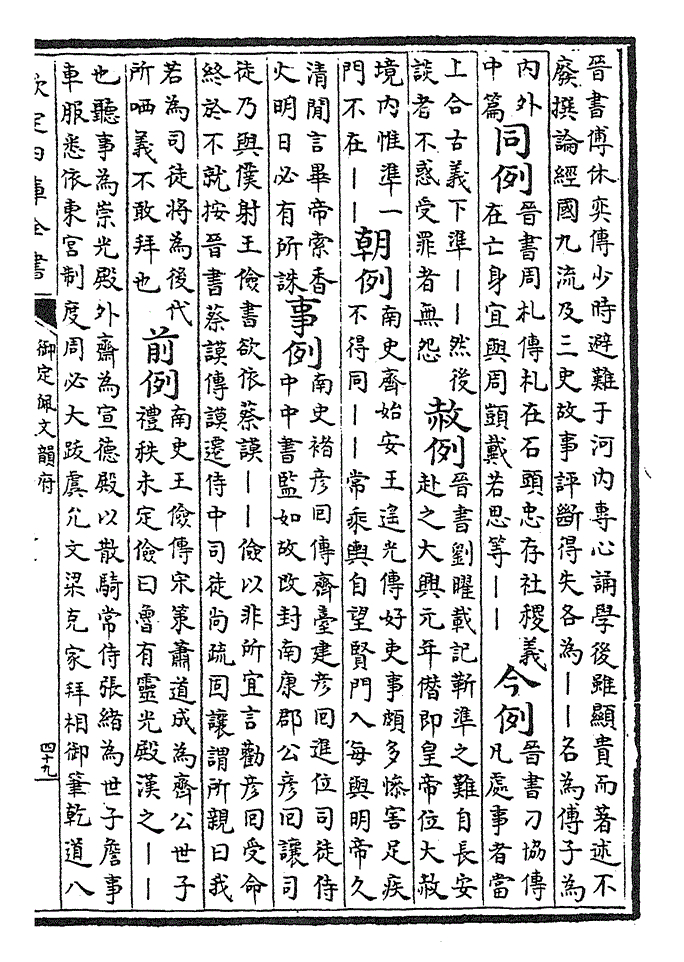 晉書傅休奕傳少時避難于河內專心誦學後雖顯貴而著述不
廢撰論經國九流及三史故事評斷得失各為——名為傅子為
內外
中篇
同例
晉書周札傳札在石頭忠存社稷義
在亡身宜與周顗戴若思等——
今例
晉書刁協傳
凡處事者當
上合古義下準——然後
談者不惑受罪者無怨
赦例
晉書劉曜載記靳準之難自長安
赴之大興元年僭即皇帝位大赦
境內惟準一
門不在——
朝例
南史齊始安王遙光傳好吏事頗多慘害足疾
不得同——常乘輿自望賢門入每與明帝久
清閒言畢帝索香
火明日必有所誅
事例
南史褚彥回傳齊臺建彥回進位司徒侍
中中書監如故改封南康郡公彥回讓司
徒乃與僕射王儉書欲依蔡謨——儉以非所宜言勸彥回受命
終於不就按晉書蔡謨傳謨遷侍中司徒尚疏固讓謂所親曰我
若為司徒將為後代
所哂義不敢拜也
前例
南史王儉傳宋策蕭道成為齊公世子
禮秩未定儉曰魯有靈光殿漢之——
也聽事為崇光殿外齋為宣德殿以散騎常侍張緒為世子詹事
車服悉依東宮制度周必大跋虞允文梁克家拜相御筆乾道八
欽定四庫全書
御定佩文韻府
四十九